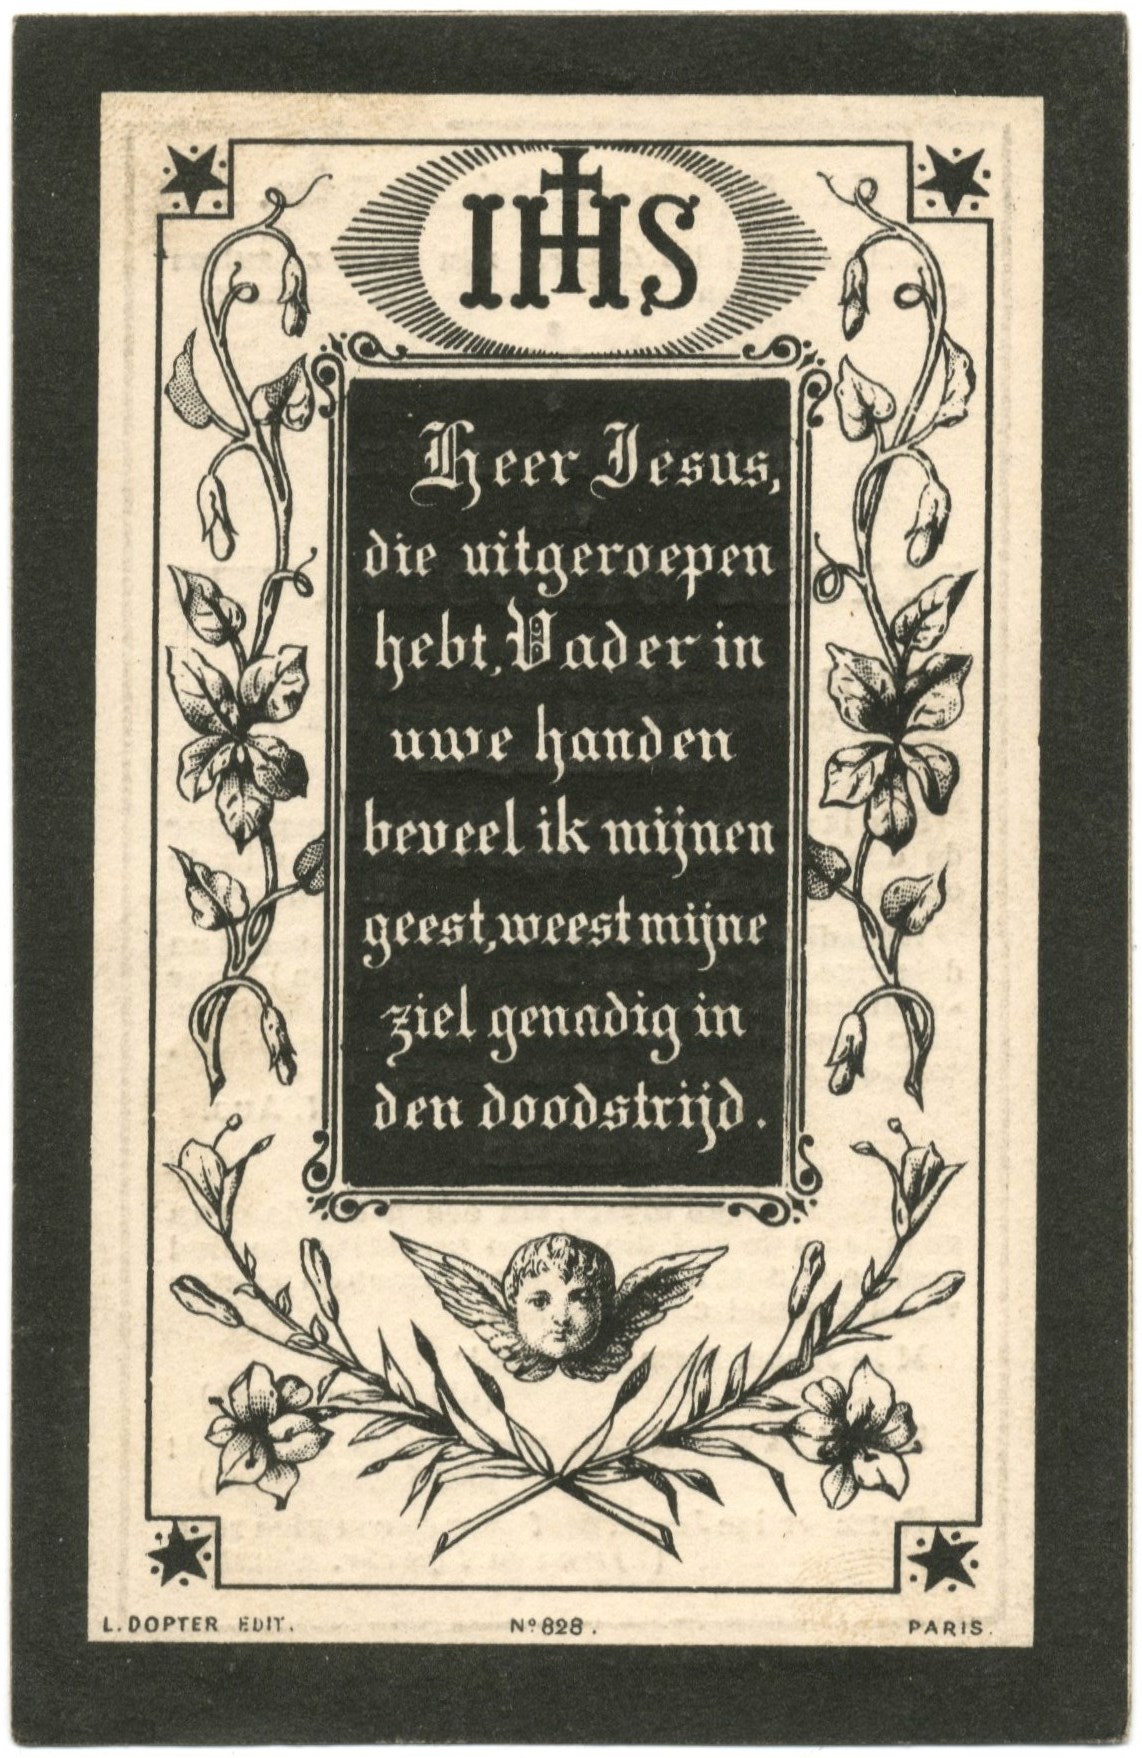 IHS
Heer Jesus,
die uitgeroepen
hebt, Vader in
uwe handen
beveel ik mijnen
geest, weest mijne
ziel genadig in
den doodstrijd.
L. DOPTER EDIT. Nº 828. PARIS.